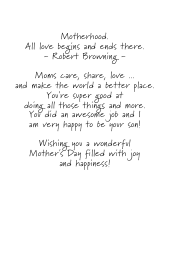 Motherhood.
All love begins and ends there.
- Robert Browning -
Moms care, share, love ...
and make the world a better place.
You're super good at
doing all those things and more.
You did an awesome job and I
am very happy to be your son!
Wishing you a wonderful
Mother's Day filled with joy
and happiness!